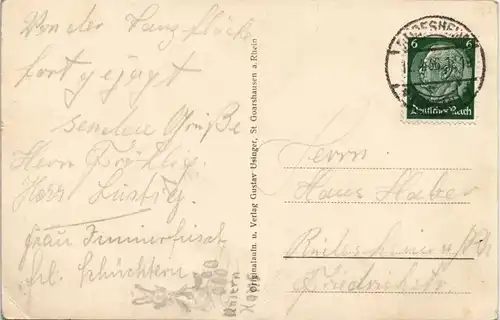 Von der Tanzfläche
fortgejagt
senden Grüße
Herr Fröhlig.
Herr Lustig.
Frau Immerfrisch
Frl. Schüchtern
Originalaufn. u. Verlag Gustav Usinger, St Goarshausen a. Rhein
6 6
Deutsches Reich
Herrn
Hans Huber
Rüdesheim a/Rh
Friedrichstr.